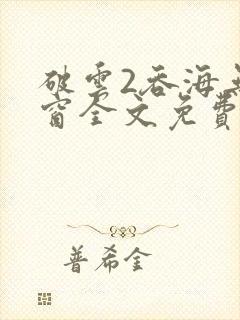 破雲2吞海無
窗全文免費
普希金